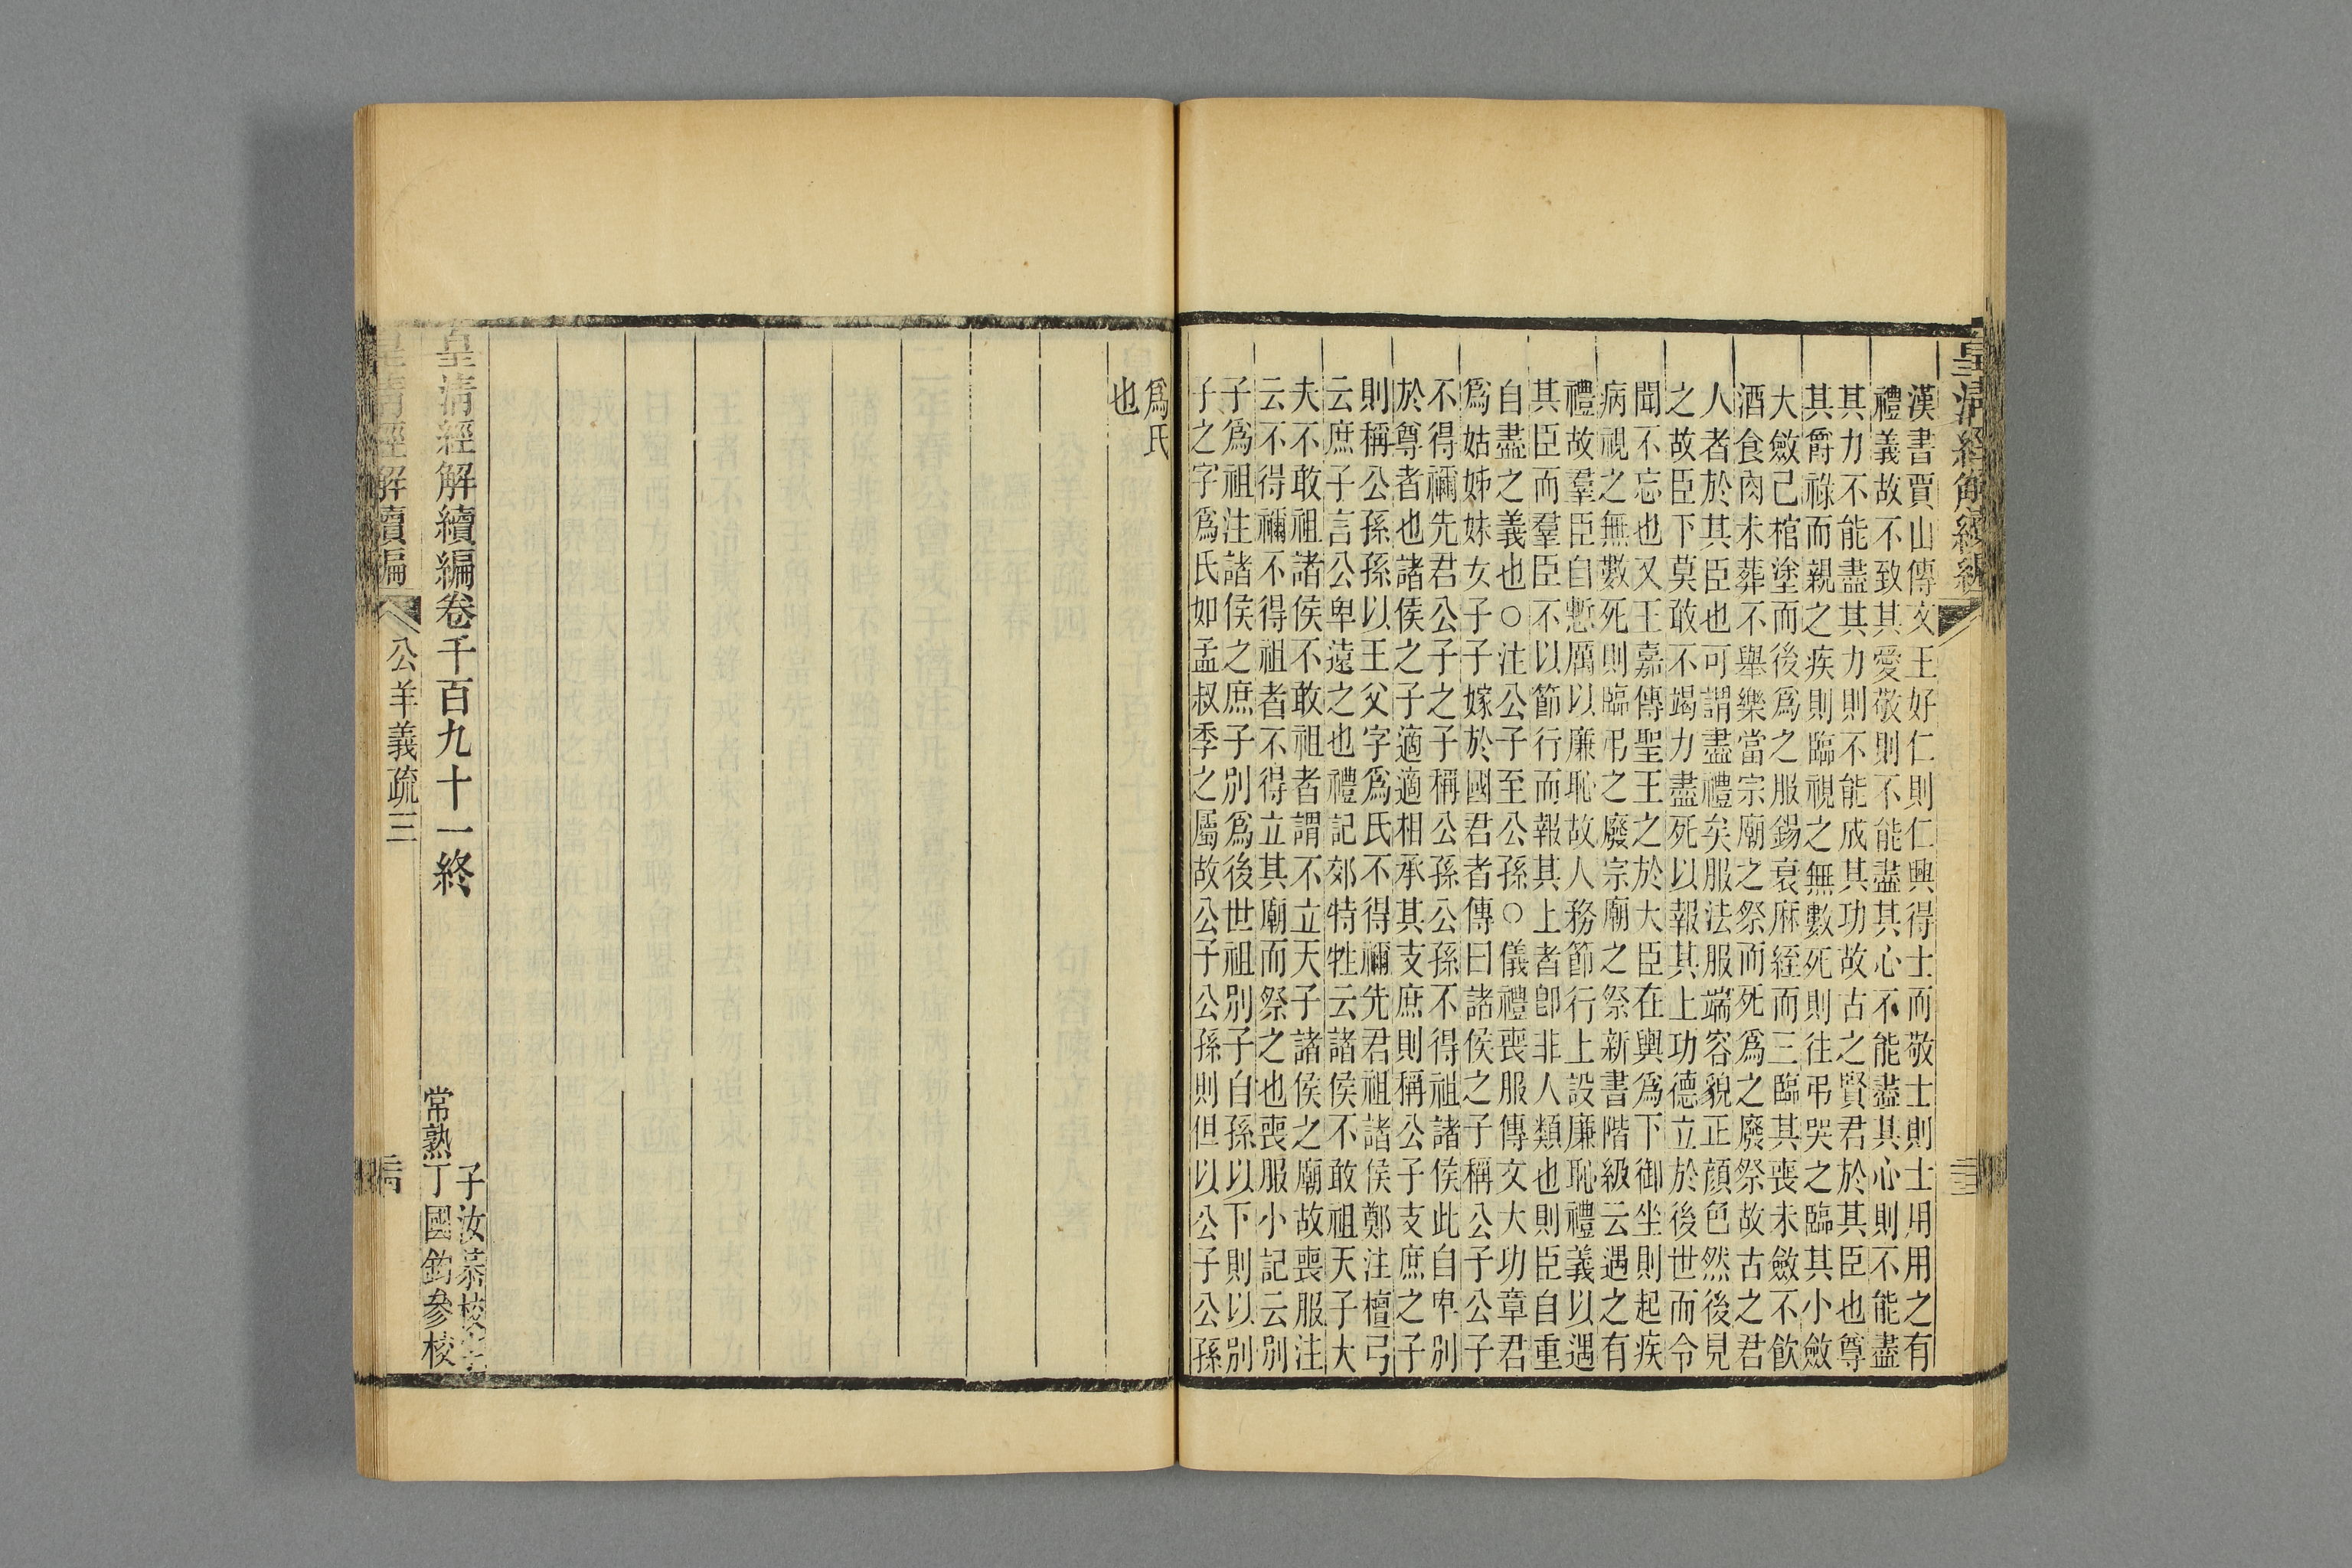 皇清經解續編
漢書賈山傳文王好仁則仁興得士而敬士則士用用之有
禮義故不致其愛敬則不能盡其心不能盡其心則不能盡
其力不能盡其力則不能成其功故古之賢君於其臣也尊
其爵祿而親之疾則臨視之無數死則往弔哭之臨其小斂
大斂己棺塗而後爲之服錫衰麻絰而三臨其喪未斂不飲
酒食肉未葬不舉樂當宗廟之祭而死爲之廢祭故古之君
人者於其臣也可謂盡禮矣服法服端容貌正顏色然後見
之故臣下莫敢不竭力盡死以報其上功德立於後世而令
聞不忘也又王嘉傳聖王之於大臣在輿爲下御坐則起疾
病視之無數死則臨弔之廢宗廟之祭新書階級云遇之有
禮故羣臣自慙厲以廉恥故人務節行上設廉恥禮義以遇
其臣而羣臣不以節行而報其上者卽非人類也則臣自重
自盡之義也○注公子至公孫○儀禮喪服傳文大功章君
爲姑姊妹女子子嫁於國君者傳曰諸侯之子稱公子公子
不得禰先君公子之子稱公孫公孫不得祖諸侯此自卑別
於尊者也諸侯之子適適相承其支庶則稱公子支庶之子
則稱公孫孫以王父字爲氏不得禰先君祖諸侯鄭注檀弓
云庶子言公卑遠之也禮記郊特牲云諸侯不敢祖天子大
夫不敢祖諸侯不敢祖者謂不立天子諸侯之廟故喪服注
云不得禰不得祖者不得立其廟而祭之也喪服小記云別
子爲祖注諸侯之庶子別爲後世祖別子自孫以下則以別
子之字爲氏如孟叔季之屬故公子公孫則但以公子公孫
爲氏
也
皇清經解續編卷千百九十一終
常熟
子汝恭校
丁國鈞參校
皇清經解續編
公羊義疏三